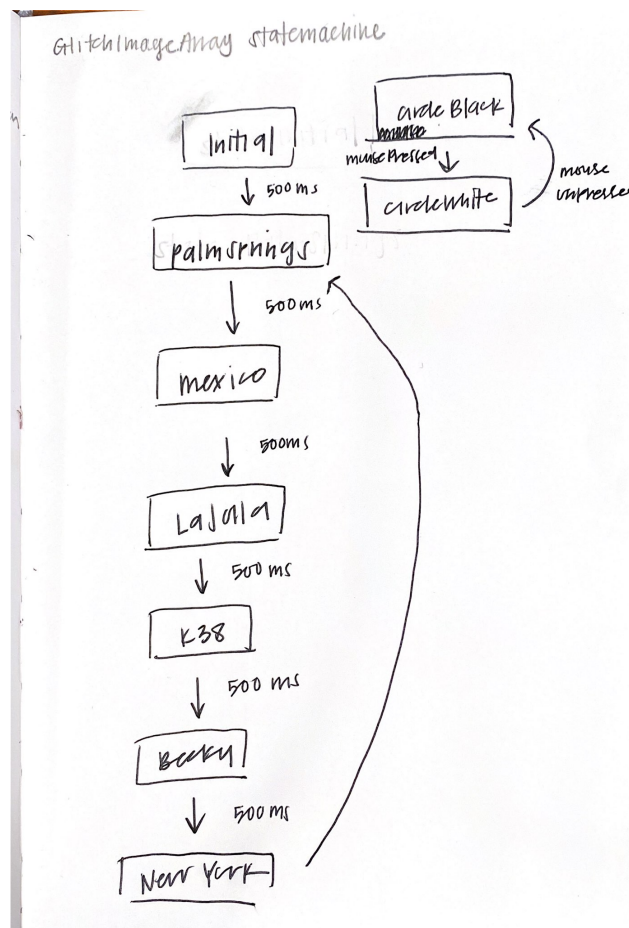 GlitchImageArray statemachine
Initial
500 ms
palmsrnings
500ms
mexico
500ms
LaJolla
500 ms
K38
500 ms
Becky
500 ms
New York
circle Black
mousePressed
circleWhite
mouse
unpressed